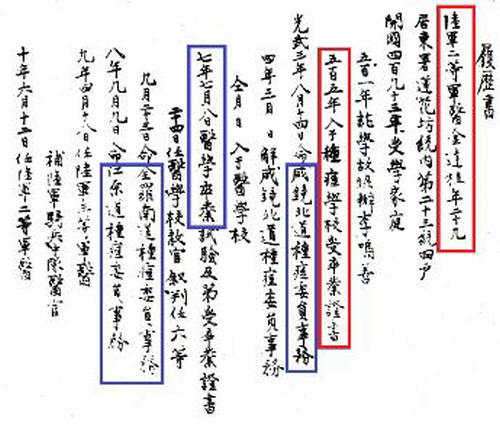 履歷書
陸軍二等軍醫金達植年二十九
居東署蓮花坊統內第二十三統四戶
開國四百九十三年受學家庭
五百一年就學故惕辦李鳴善
五百五年入于種痘學校受卒業證書
光武三年八月十四日命咸鏡北道種痘委員事務
四年三月 日解咸鏡北道種痘委員事務
仝月日入于醫學校
七年七月八日醫學卒業試驗及弟受卒業證書
二十四日任醫學校敎官敍判任六等
九月二十三日命全羅南道種痘委員事務
八年九月九日命江原道種痘委員事務
九年四月十八日任陸軍三等軍醫
補陸軍騎兵隊醫官
十年六月十二日任陸軍二等軍醫